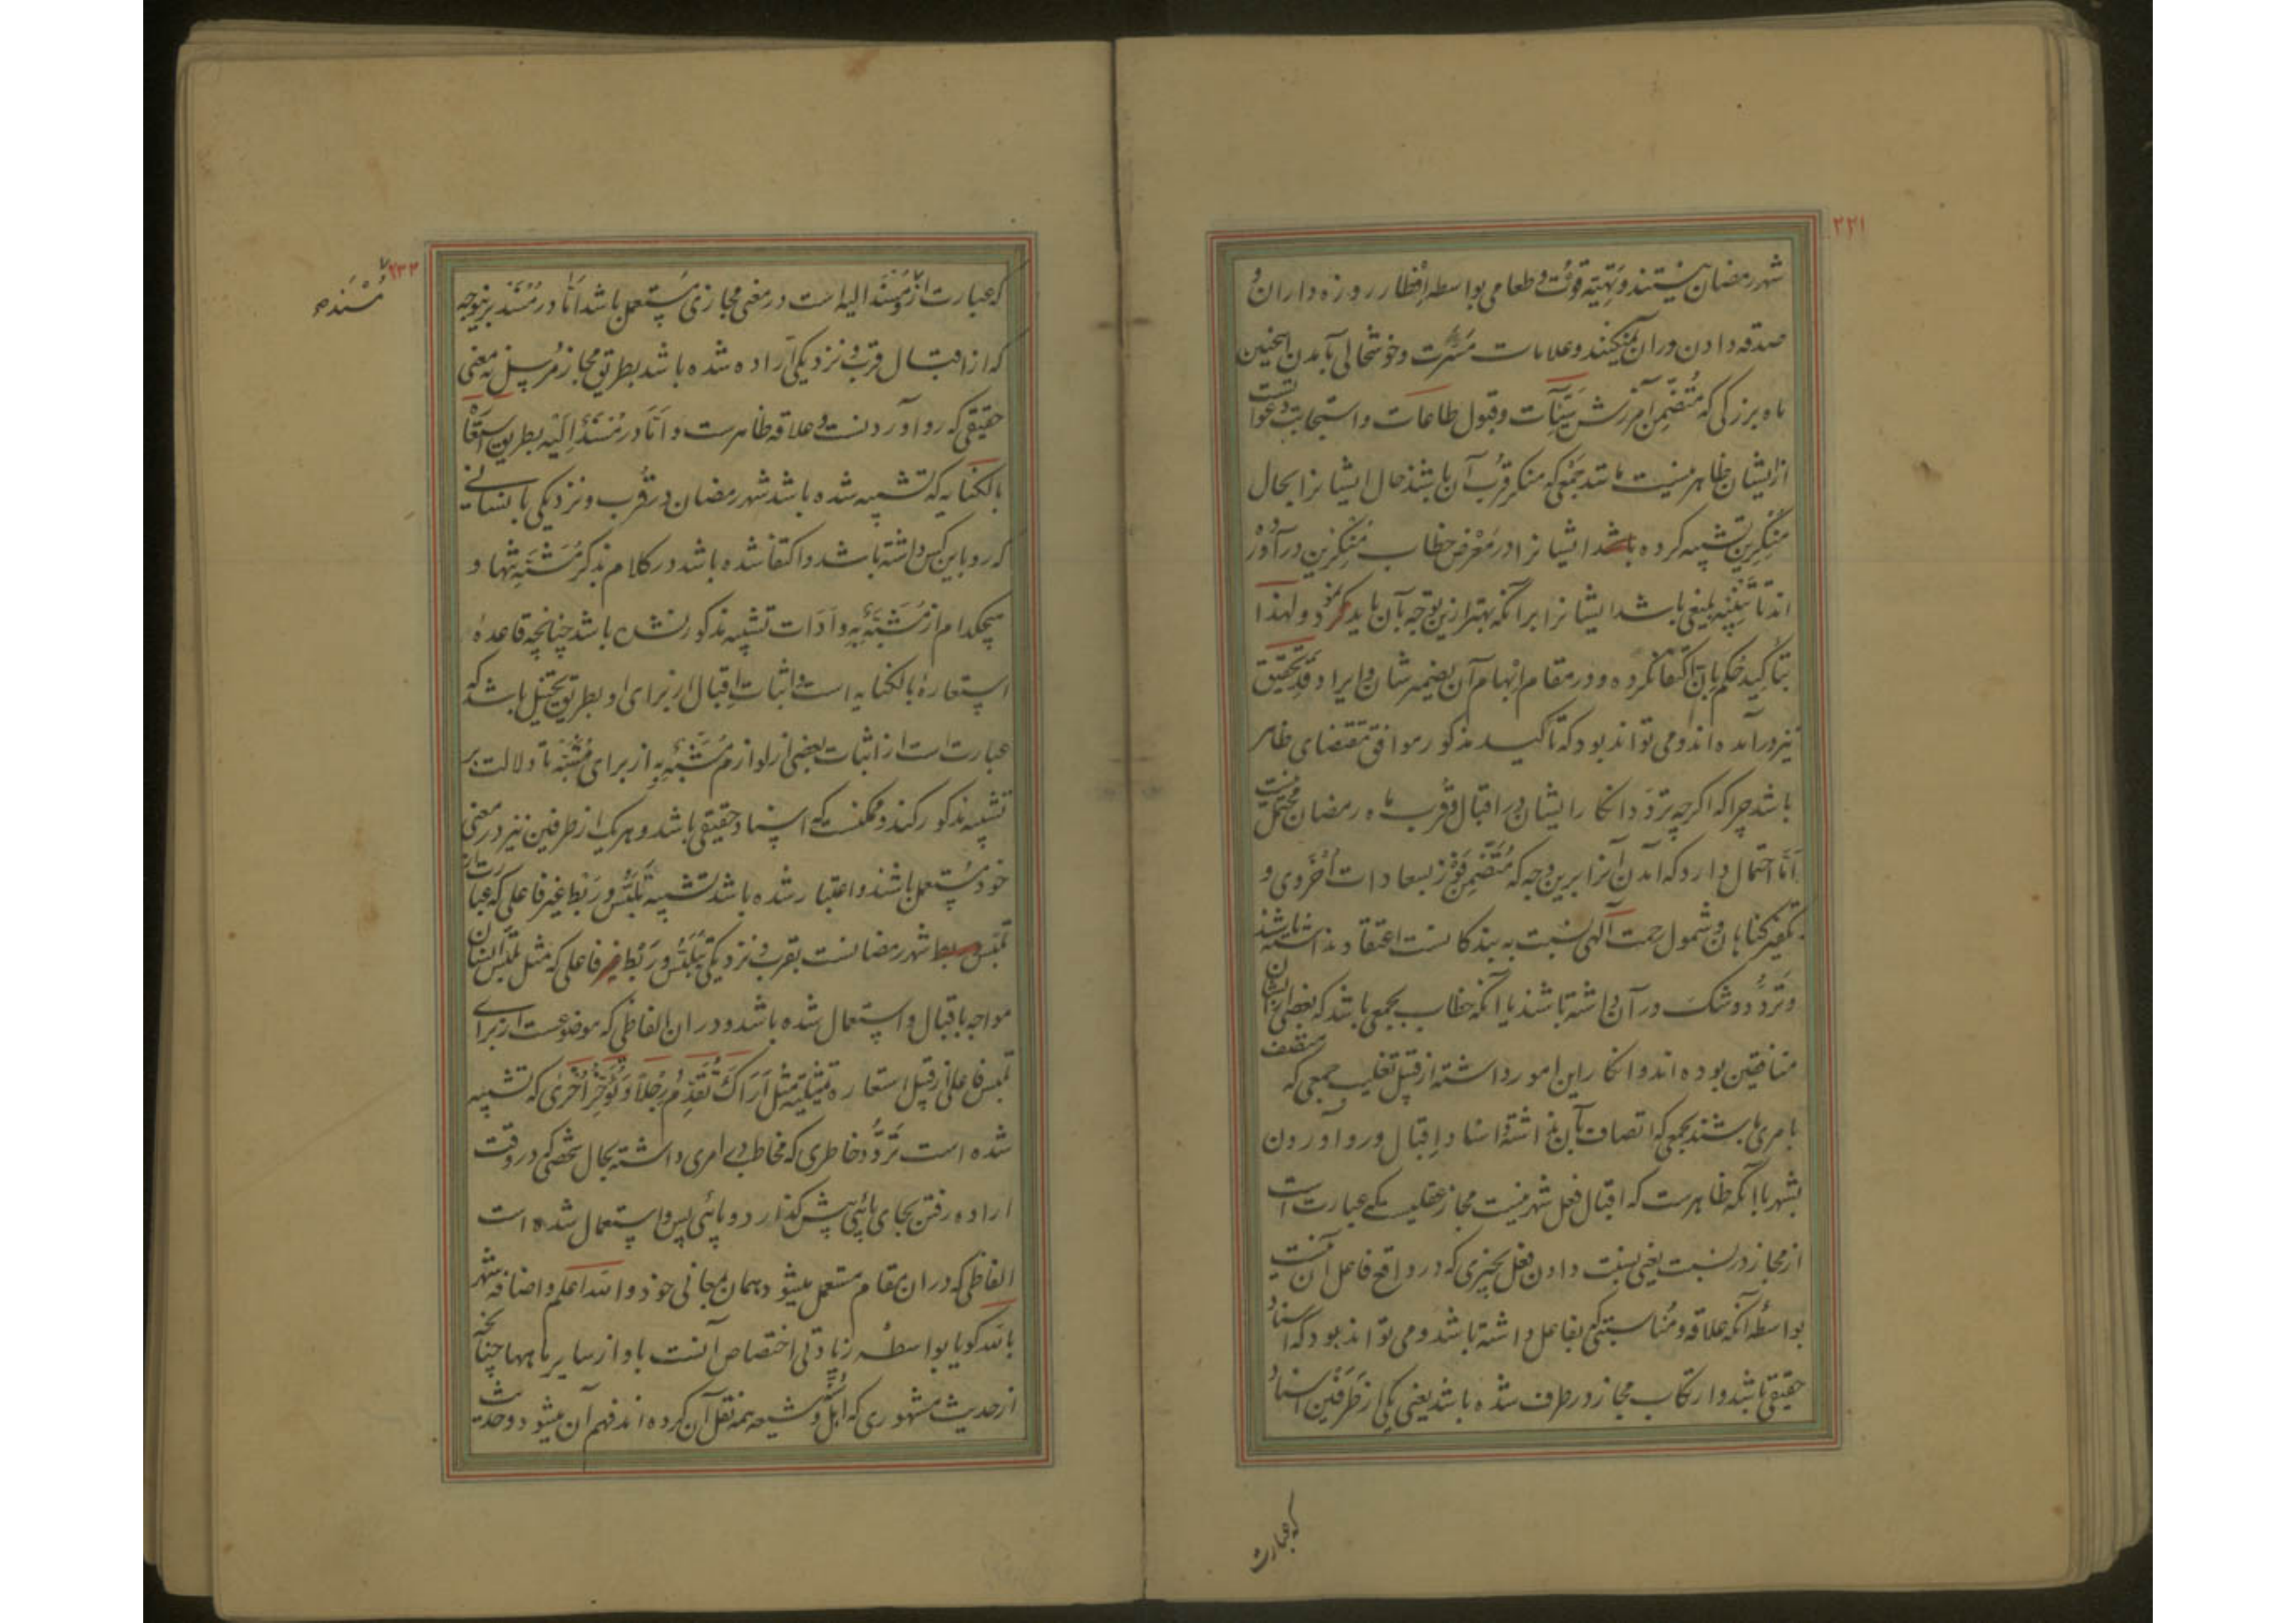 ۲۲۱
شهر رمضان نیستند و تهیّه قوت و طعامی بواسطه افطار روزه داران و
صدقه دادن در آن نمیکنند و علامات مسرّت و خوشحالی بآمدن اینچنین
ماه بزرگی که متضمّن آمرزش سیّئات و قبول طاعات و استجابت دعوات
از ایشان ظاهر نیست مانند جمعی که منکر قرب آن باشند حال ایشانرا بحال
منکرین تشبیه کرده باشد ایشانرا در معرض خطاب منکرین درآورده
اند تا تنبیه بلیغی باشد ایشانرا برآنکه بهتر ازین توجه بآن باید نمود و لهذا
بتاکید حکم بانّ اکتفا نکرده و در مقام ابهام آن بضمیر شان و ایراد قد تحقیق
نیز درآمده اند و می تواند بود که تاکید مذکور موافق مقتضای ظاهر
باشد چرا که اگرچه تردّد و انکار ایشان در اقبال و قرب ماه رمضان محتمل نیست
امّا احتمال دارد که آمدن آنرا برین وجه که متضمّن فوز بسعادات اُخروی و
تکفیر گناهان و شمول رحمت آلهی نسبت به بندگانست اعتقاد نداشته باشند
و تردّد و شک در آن داشته باشند یا آنکه خطاب بجمعی باشد که بعضی از ایشان
منافقین بوده اند و انکار این امور داشته از قبیل تغلیب جمعی که متصف
بامری باشند بجمعی که اتصاف بآن نداشته و اسناد اقبال و رو آوردن
بشهر با آنکه ظاهرست که اقبال فعل شهر نیست مجاز عقلیست که عبارت است
از مجاز در نسبت یعنی نسبت دادن فعل بچیزی که در واقع فاعل آن نیست
بواسطه آنکه علاقه و مناسبتی بفاعل داشته باشد و می تواند بود که اسناد
حقیقی باشد و ارتکاب مجاز در طرف شده باشد یعنی یکی از طرفین اسناد
که عبارت
۲۳۲
مُسْنَد
که عبارت از و مسند الیه است در معنی مجازی مستعمل باشد امّا در مسند برینوجه
که از اقبال قرب و نزدیکی اراده شده باشد بطریق مجاز مرسل نه معنی
حقیقی که رو آوردنست و علاقه ظاهرست و امّا در مسند الیه بطریق استعاره
بالکنایه که تشبیه شده باشد شهر رمضان در قرب و نزدیکی بانسانی
که رو باین کس داشته باشد و اکتفا شده باشد در کلام بذکر مشبّه تنها و
هیچکدام از مشبّه به و اَدات تشبیه مذکور نشده باشد چنانچه قاعدهٔ
استعارهٔ بالکنایه است و اثبات اقبال از برای او بطریق تخییل باشد که
عبارت است از اثبات بعضی از لوازم مشبّه به از برای مشبّه تا دلالت بر
تشبیه مذکور کند و ممکنست که اسناد حقیقی باشد و هر یک از طرفین نیز در معنی
خود مستعمل باشند و اعتبار شده باشد تشبیه تلبّس و ربط غیر فاعلی که عبارت از
تلبّس و ربط شهر رمضانست بقرب و نزدیکی بتلبّس و ربط فاعلی که مثل تلبّس انسان
مواجه باقبال و استعمال شده باشد در ان الفاظی که موضوعست از برای
تلبس فاعلی از قبیل استعاره تمثیلیّه مثل اَراک تُقدّم رِجلاً و تُؤخّر اُخری که تشبیه
شده است تردّد خاطری که مخاطب در امری داشته بحال شخصی که در وقت
اراده رفتن بجای پائی پیش گذارد و پائی پس و استعمال شده است
الفاظی که در ان مقام مستعمل میشود بهمان معانی خود و الله اعلم و اضافه شهر
بالله گویا بواسطه زیادتی اختصاص آنست باو از سایر ماهها چنانچه
از حدیث مشهوری که اهل سنّت و شیعه همه نقل آن کرده اند فهم آن میشود و حدیث